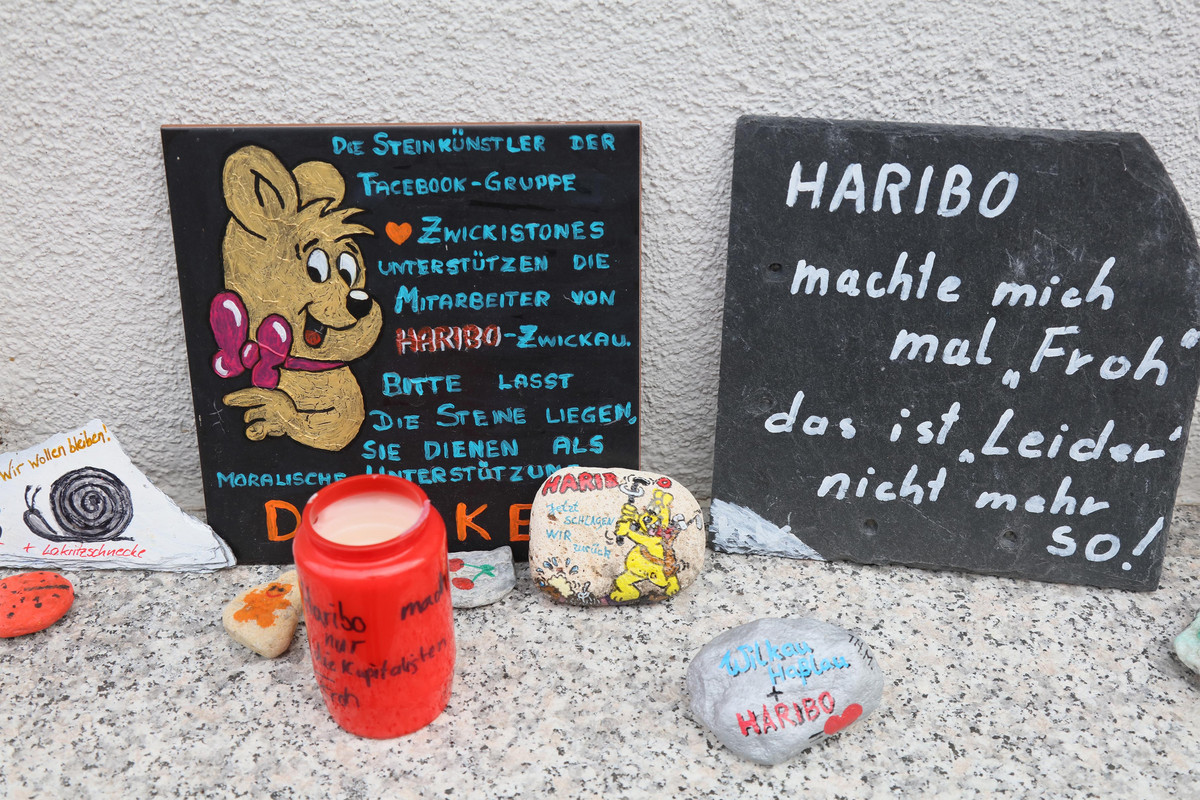 DIE STEINKÜNSTLER DER
FACEBOOK-GRUPPE
ZWICKISTONES
UNTERSTÜTZEN DIE
MITARBEITER VON
HARIBO-ZWICKAU.
BITTE LASST
DIE STEINE LIEGEN,
SIE DIENEN ALS
MORALISCHE UNTERSTÜTZUN
HARIBO
machte mich
mal „Froh“
das ist „Leider“
nicht mehr
so!
Wir wollen bleiben!
+ Lakritzschnecke
HARIBO
Jetzt
SCHLAGEN
WIR
zurück
Haribo macht
nur
die Kapitalisten
froh
Wilkau
Haßlau
+
HARIBO